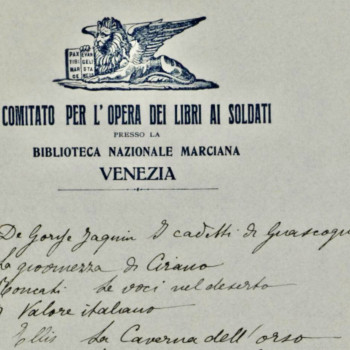 PAX EVAN
TIBI GELI
MAR STA
CE MEUS
COMITATO PER L'OPERA DEI LIBRI AI SOLDATI
PRESSO LA
BIBLIOTECA NAZIONALE MARCIANA
VENEZIA
De Gorsse Jaquin I cadetti di Guascogn
La giovinezza di Cirano
Le voci nel deserto
Valore italiano
Ellis La Caverna dell'orso